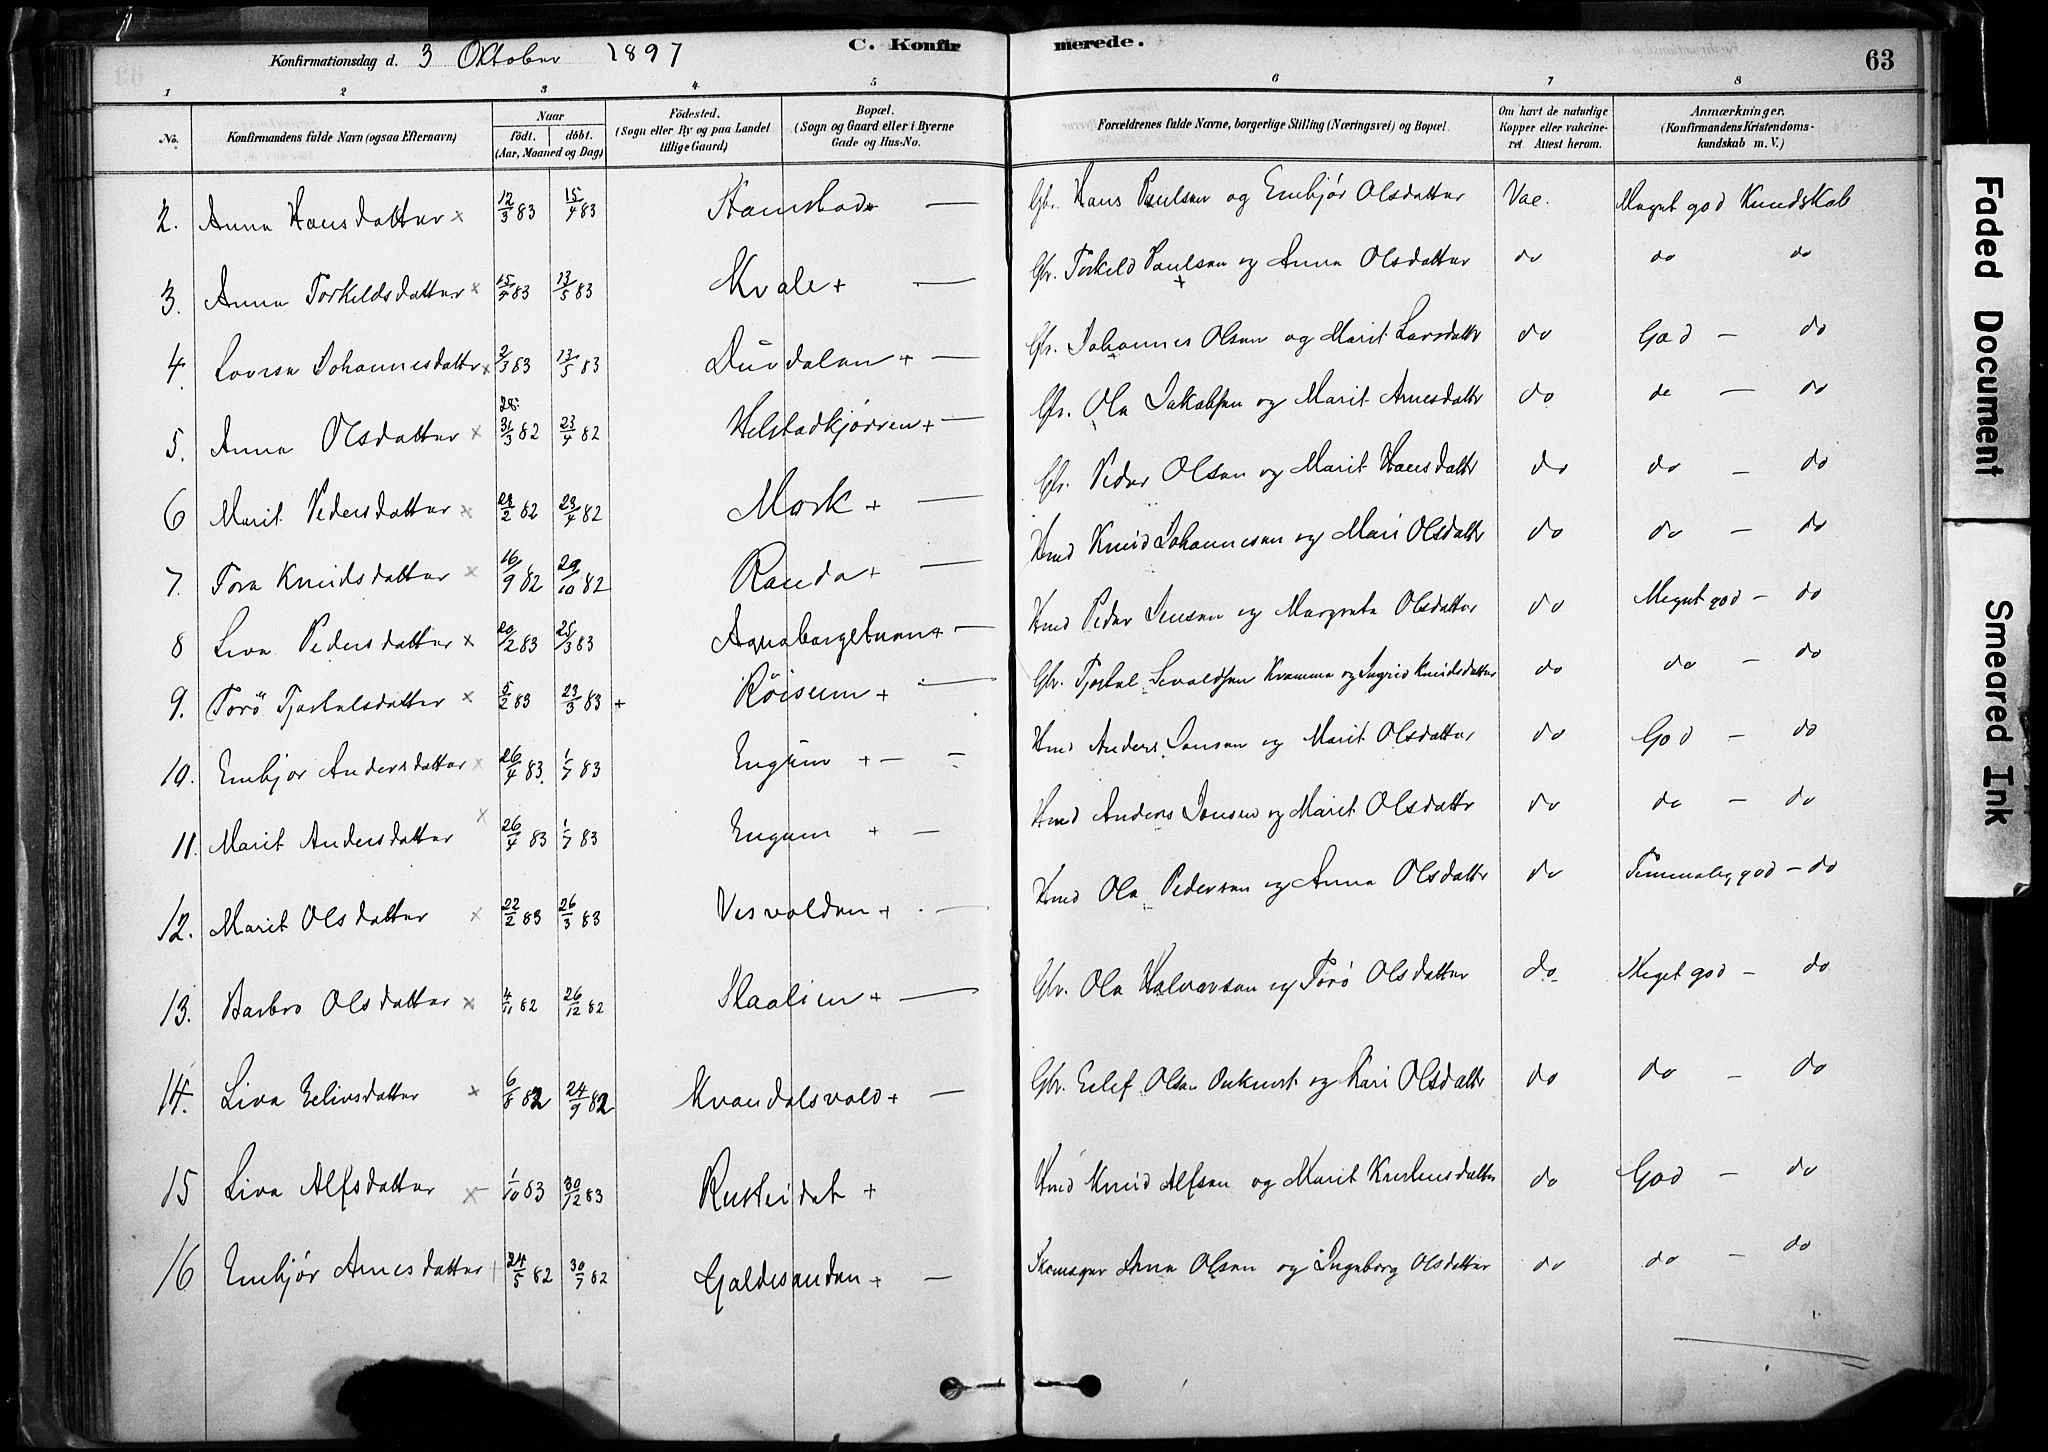 Konfirmationsdag d. 3 Oktober 1897 C. Konfirmerede. 63
1 2 3 4 5 6 7 8
No. Konfirmandens fulde Navn (ogsaa Efternavn) Naar født. døbt. (Aar, Maaned og Dag) Fødested. (Sogn eller By og paa Landet tillige Gaard) Bopæl. (Sogn og Gaard eller i Byerne Gade og Hus-No. Forældrenes fulde Navne, borgerlige Stilling (Næringsvei) og Bopæl Om havt de naturlige Kopper eller vakcineret. Attest herom. Anmærkninger. (Konfirmandens Kristendomskundskab m. V.)
2. Anna Hansdatter × 12/3 83 15/4 83 — Gbr. Hans Paulsen og Embjør Olsdatter Vac. Meget god Kundskab
3. Anna Torkeldsdatter × 15/4 83 13/5 83 Kvale + — Gbr. Torkeld Paulsen og Anna Olsdatter do do do
4. Lovisa Johannesdatter × 2/3 83 13/5 83 Durdalen + — Gbr. Johannes Olsen og Marit Larsdatter do God — do
5. Anna Olsdatter × 28 31/3 82 23/4 82 Helstadkjørren + — Gbr. Ola Jakobsen og Marit Arnesdatter do do — do
6 Marit Pedersdatter × 28/2 82 23/4 82 Mork + — Gbr. Peder Olsen og Marit Hansdatter do do — do
7. Tora Knudsdatter × 16/9 82 29/10 82 Randa + — Hmd Knud Johannesen og Mari Olsdatter do do — do
8 Liva Pedersdatter × 20/2 83 25/3 83 + — Hmd Peder Jensen og Margreta Olsdatter do Meget god — do
9. Torø Tjostulsdatter × 5/2 83 23/3 83 + Røisum + — Gbr. Tjostul Sevaldsen Kvamme og Ingrid Knudsdatter do do — do
10. Embjør Andersdatter × 26/4 83. 1/7 83 Engum + — — Hmd Anders Jonsen og Marit Olsdatter do God — do
11. Marit Andersdatter × 26/4 83 1/7 83 Engum + — Hmd Anders Jonsen og Marit Olsdatter do do — do
12. Marit Olsdatter × 22/2 83 26/3 83 Vesvolden + — Hmd Ola Pedersen og Anna Olsdatter do Temmelig god — do
13. Barbro Olsdatter × 4/11 82 26/12 82 Slaalien + — Gbr. Ola Halvorsen og Torø Olsdatter do Meget god — do
14. Liva Eilivsdatter × 6/8 82 24/9 82 Kvandalsvold + — Gbr. Eilef Olsen og Kari Olsdatter do do — do
15 Liva Alfsdatter × 1/10 83 30/12 83 Rusteidet + Hmd Knud Alfsen og Marit Kristensdatter do God — do
16 Embjør Arnesdatter + 24/5 82 30/7 82 Galdesanden + — Skomager Arne Olsen og Ingeborg Olsdatter do do — do
Faded Document
Smeared Ink